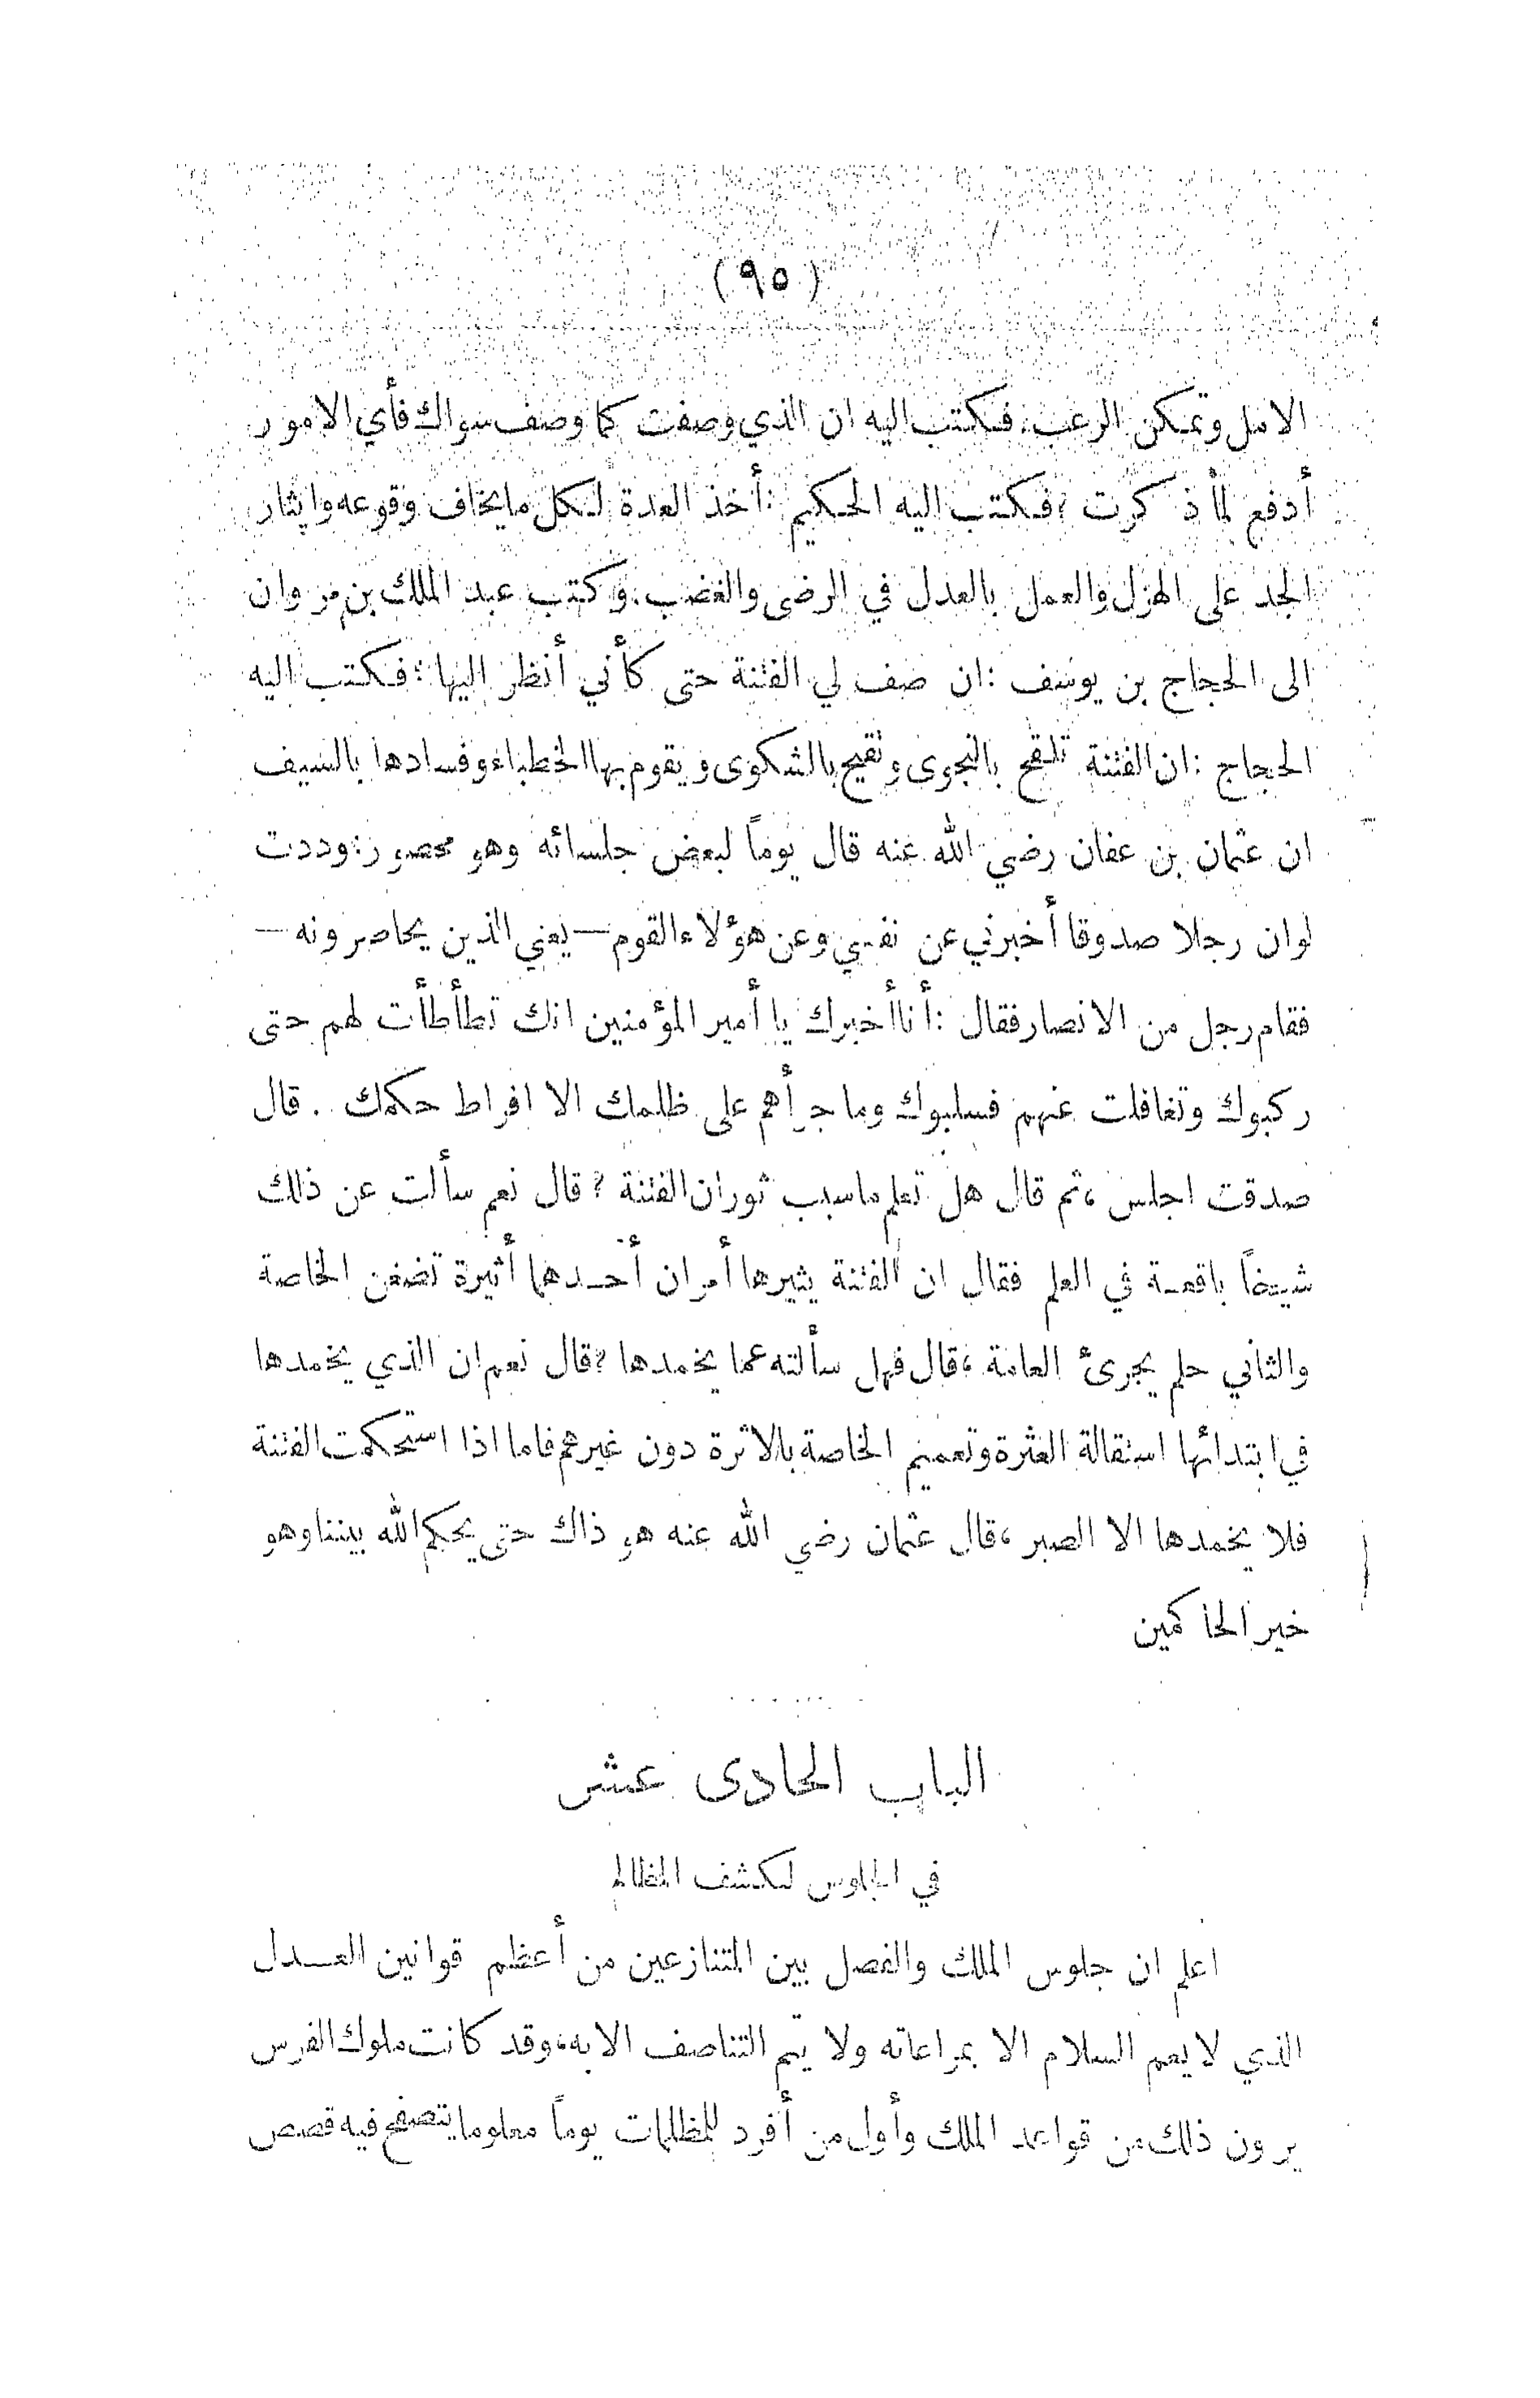 (٩٥)
الامل وتمكن الرعب، فكتب اليه ان الذي وصفت كما وصف سواك فأي الامور
أدفع لما ذكرت ؟فكتب اليه الحكيم :أخذ العدة لكل ما يخاف وقوعه وايثار
الجد على الهزل والعمل بالعدل في الرضى والغضب. وكتب عبد الملك بن مروان
الى الحجاج بن يوسف :ان صف لي الفتنة حتى كأني أنظر اليها :فكتب اليه
الحجاج :ان الفتنة تلقح بالنجوى وتقيح بالشكوى ويقوم بها الخطباء وفسادها بالسيف
ان عثمان بن عفان رضي الله عنه قال يوماً لبعض جلسائه وهو محصور: وددت
لو ان رجلا صدوقا أخبرني عن نفسي وعن هؤلاء القوم— يعني الذين يحاصرونه —
فقام رجل من الانصار فقال :أنا أخبرك يا أمير المؤمنين انك تطأطأت لهم حتى
ركبوك وتغافلت عنهم فسلبوك وما جرأهم على ظلمك الا افراط حكمك . قال
صدقت اجلس ،ثم قال هل تعلم ما سبب ثوران الفتنة ? قال نعم سألت عن ذلك
شيخاً باقعة في العلم فقال ان الفتنة يثيرها أمران أحدهما أثيرة تضغن الخاصة
والثاني حلم يجرئ العامة ،قال فهل سألته عما يخمدها ?قال نعم ان الذي يخمدها
في ابتدائها استقالة العثرة وتعميم الخاصة بالاثرة دون غيرهم فاما اذا استحكمت الفتنة
فلا يخمدها الا الصبر ،قال عثمان رضي الله عنه هو ذاك حتى يحكم الله بيننا وهو
خير الحاكمين
الباب الحادى عشر
في الجلوس لكشف المظالم
اعلم ان جلوس الملك والفصل بين المتنازعين من أعظم قوانين العدل
الذي لا يعم السلام الا بمراعاته ولا يتم التناصف الا به، وقد كانت ملوك الفرس
يرون ذلك من قواعد الملك وأول من أفرد للمظلمات يوماً معلوما يتصفح فيه قصص